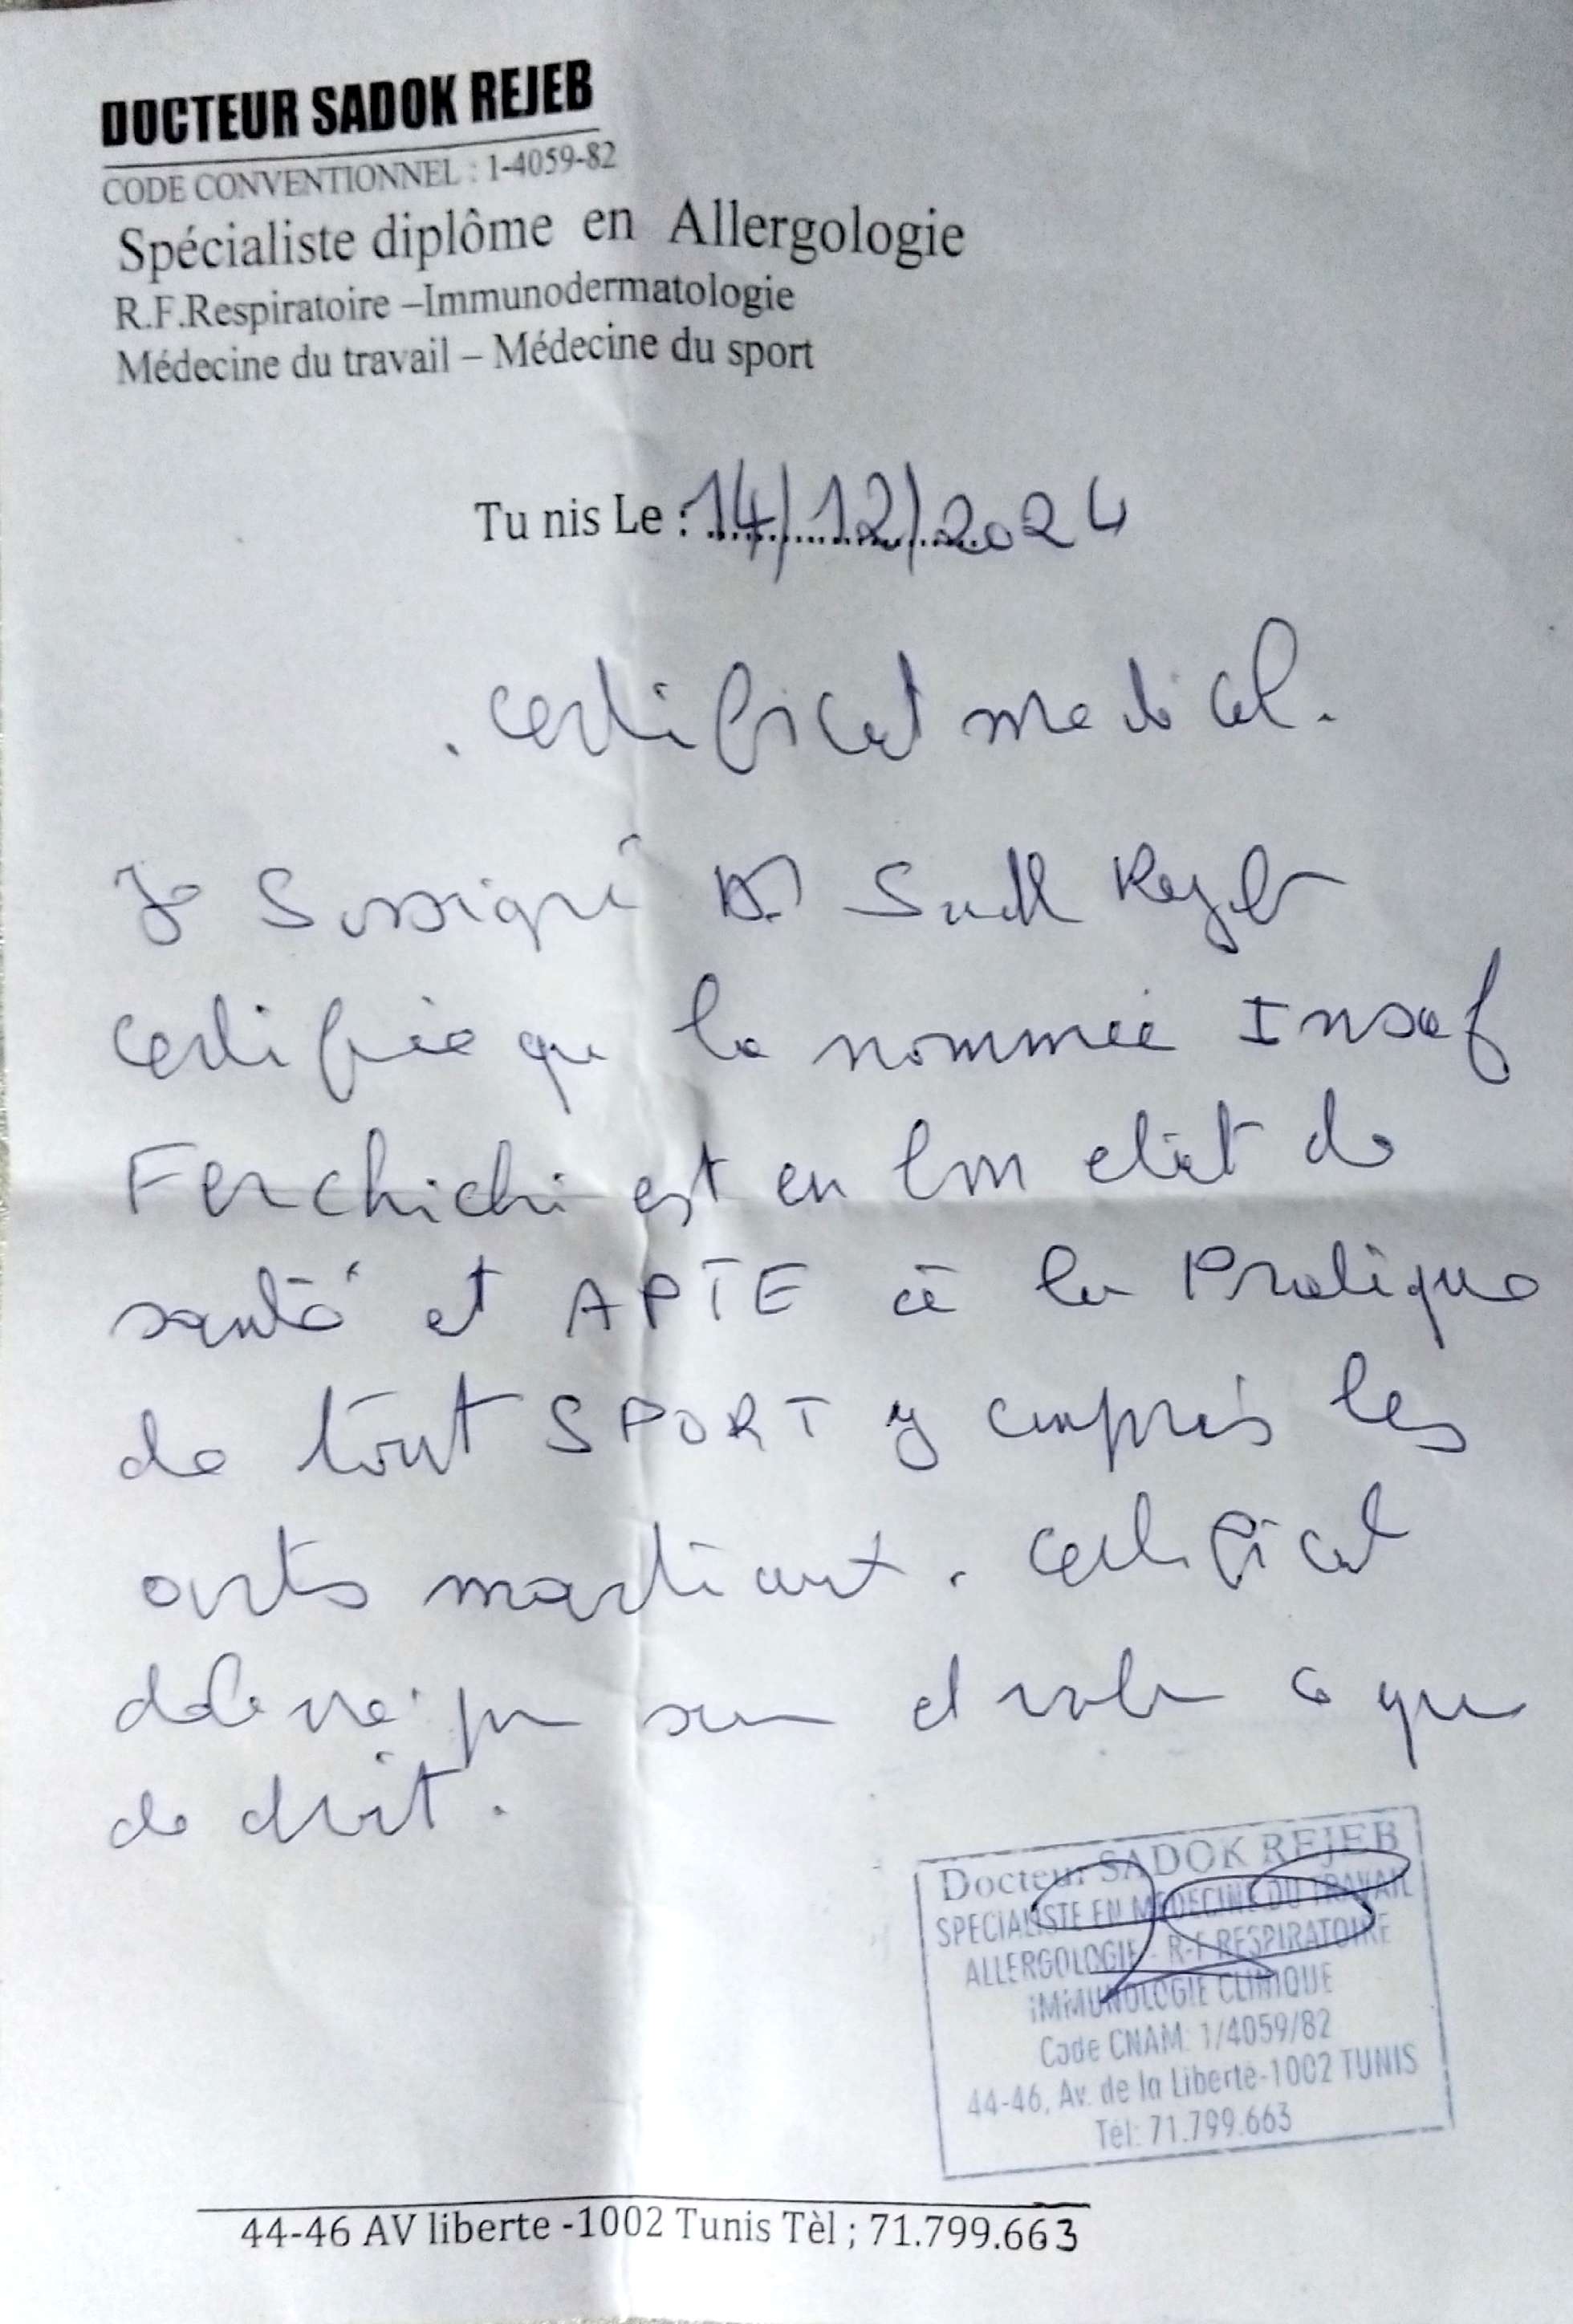 DOCTEUR SADOK REJEB
CODE CONVENTIONNEL : 1-4059-82
Spécialiste diplôme en Allergologie
R.F.Respiratoire –Immunodermatologie
Médecine du travail – Médecine du sport
Tu nis Le : 14/12/2024
. certificat medical .
Je Sussigné Dr Sadk Rejeb
certifiée que la nommée Insaf
Ferchichi est en bon etat de
santé et APTE à la Pratique
de tout SPORT y compris les
arts martiaux . Certificat
delivré pour servir et valoir à que
de droit .
Docteur SADOK REJEB
SPECIALISTE EN MEDECINE DU TRAVAIL
ALLERGOLOGIE - R-F RESPIRATOIRE
IMMUNOLOGIE CLINIQUE
Code CNAM: 1/4059/82
44-46, Av. de la Liberté-1002 TUNIS
Tél: 71.799.663
44-46 AV liberte -1002 Tunis Tèl ; 71.799.663